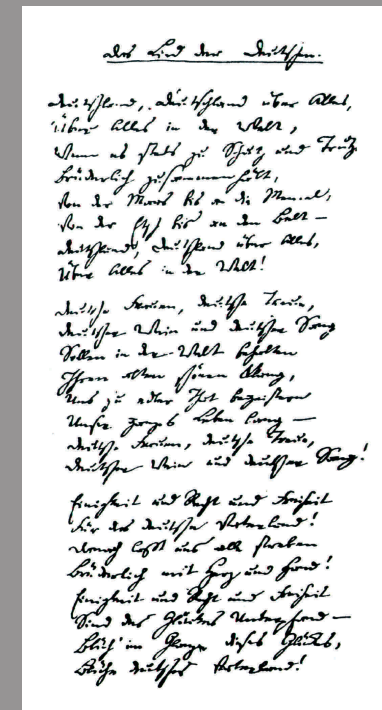 Das Lied der Deutschen.
Deutschland, Deutschland über Alles,
Über Alles in der Welt,
Wenn es stets zu Schutz und Trutz
Brüderlich zusammenhält,
Von der Maas bis an die Memel,
Von der Etsch bis an den Belt –
Deutschland, Deutschland über Alles,
Über Alles in der Welt!
Deutsche Frauen, deutsche Treue,
Deutscher Wein und deutscher Sang
Sollen in der Welt behalten
Ihren alten schönen Klang,
Uns zu edler That begeistern
Unser ganzes Leben lang –
Deutsche Frauen, deutsche Treue,
Deutscher Wein und deutscher Sang!
Einigkeit und Recht und Freiheit
Für das deutsche Vaterland!
Danach lasst uns alle streben
Brüderlich mit Herz und Hand!
Einigkeit und Recht und Freiheit
Sind des Glückes Unterpfand –
Blüh' im Glanze dieses Glückes,
Blühe deutsches Vaterland!